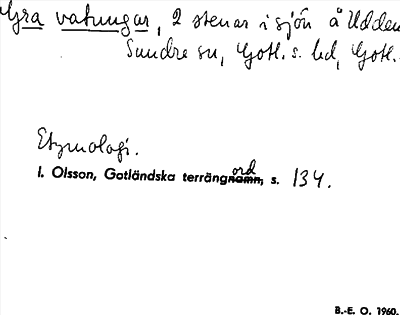 Gra vatungar, 2 stenar i sjön å Udden
Sundre sn, Gotl. s. hd, Gotl.
Etymologi.
I. Olsson, Gotländska terrängnamn, ord s. 134.
B.-E. O. 1960.